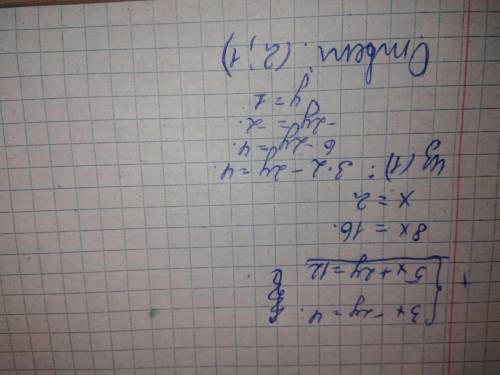 { 3x - 2y = 4.
+ { 5x + 2y = 12
8x = 16.
x = 2
Из (1): 3·2 - 2y = 4.
6 - 2y = 4.
-2y = -2.
y = 1
Ответ: (2; 1)